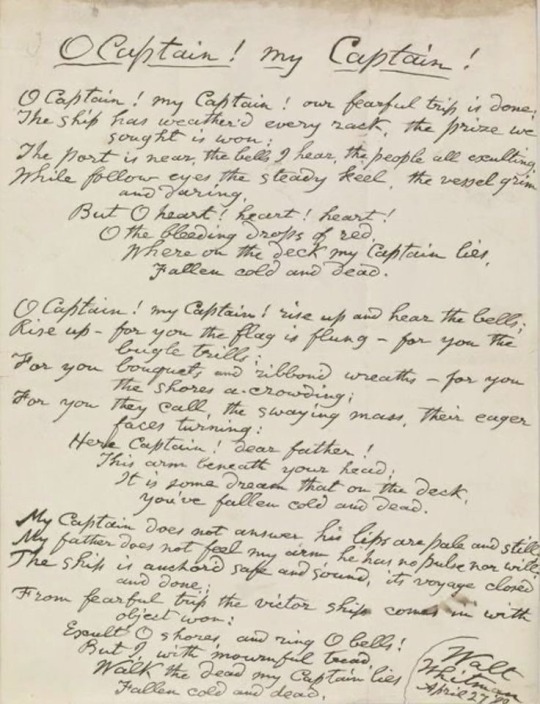 O Captain! my Captain!
O Captain! my Captain! our fearful trip is done,
The ship has weather'd every rack, the prize we
sought is won;
The port is near, the bells I hear, the people all exulting
While follow eyes the steady keel, the vessel grim
and daring,
But O heart! heart! heart!
O the bleeding drops of red,
Where on the deck my Captain lies,
Fallen cold and dead.
O Captain! my Captain! rise up and hear the bells;
Rise up - for you the flag is flung - for you the
bugle trills;
For you bouquets and ribbon'd wreaths - for you
the shores a-crowding;
For you they call, the swaying mass, their eager
faces turning:
Here Captain! dear father!
This arm beneath your head;
It is some dream that on the deck,
You've fallen cold and dead.
My Captain does not answer, his lips are pale and still
My father does not feel my arm, he has no pulse nor will
The ship is anchor'd safe and sound, its voyage closed
and done;
From fearful trip the victor ship comes in with
object won:
Exult O shores, and ring O bells!
But I, with mournful tread,
Walk the deck my Captain lies
Fallen cold and dead.
Walt
Whitman
April 27